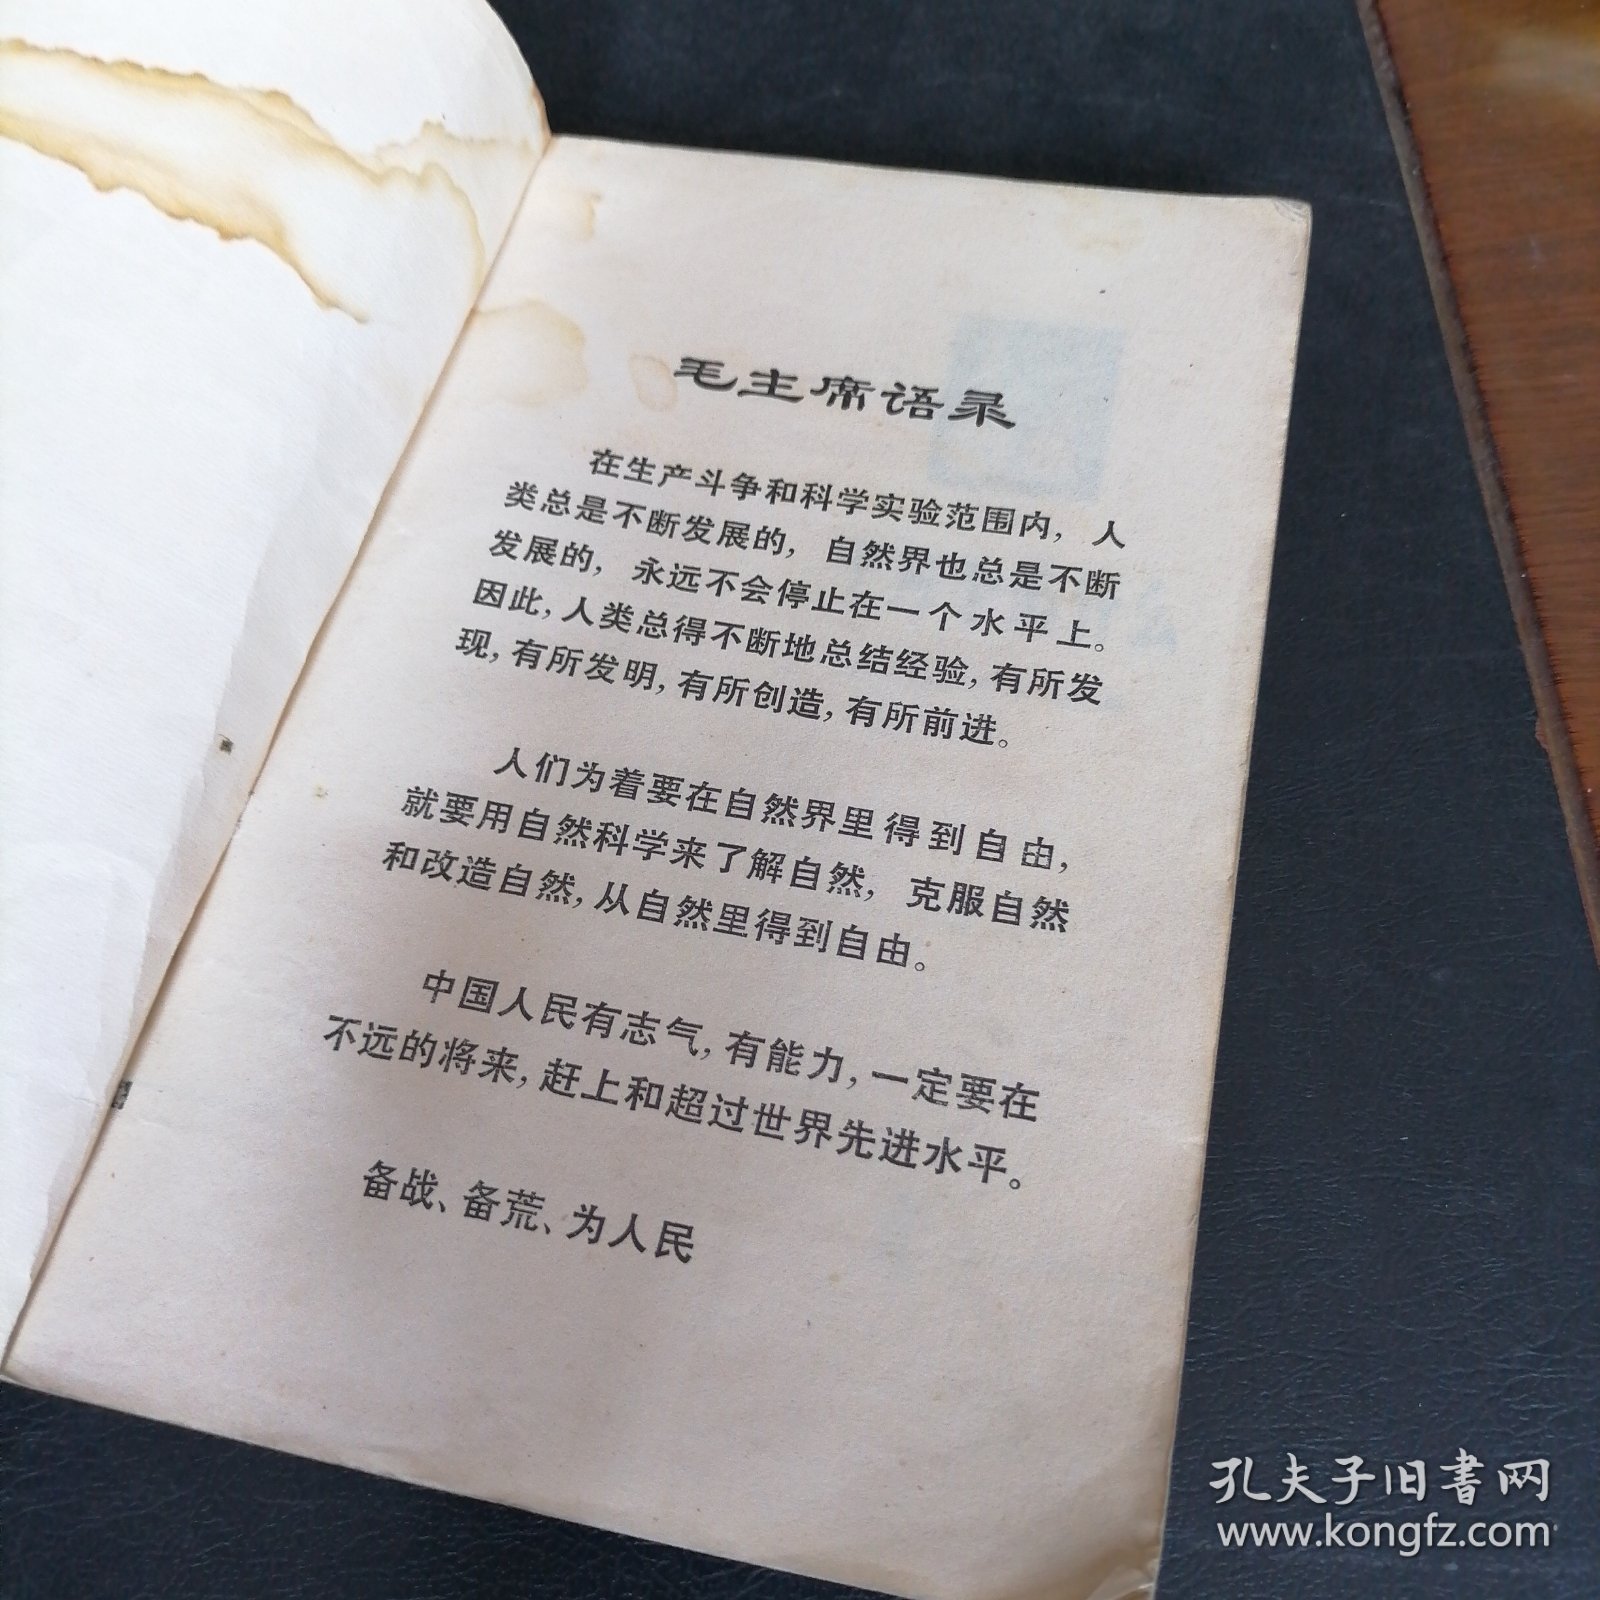 毛主席语录
在生产斗争和科学实验范围内，人
类总是不断发展的，自然界也总是不断
发展的，永远不会停止在一个水平上。
因此，人类总得不断地总结经验，有所发
现，有所发明，有所创造，有所前进。
人们为着要在自然界里得到自由，
就要用自然科学来了解自然，克服自然
和改造自然，从自然里得到自由。
中国人民有志气，有能力，一定要在
不远的将来，赶上和超过世界先进水平。
备战、备荒、为人民
孔夫子旧书网
www.kongfz.com